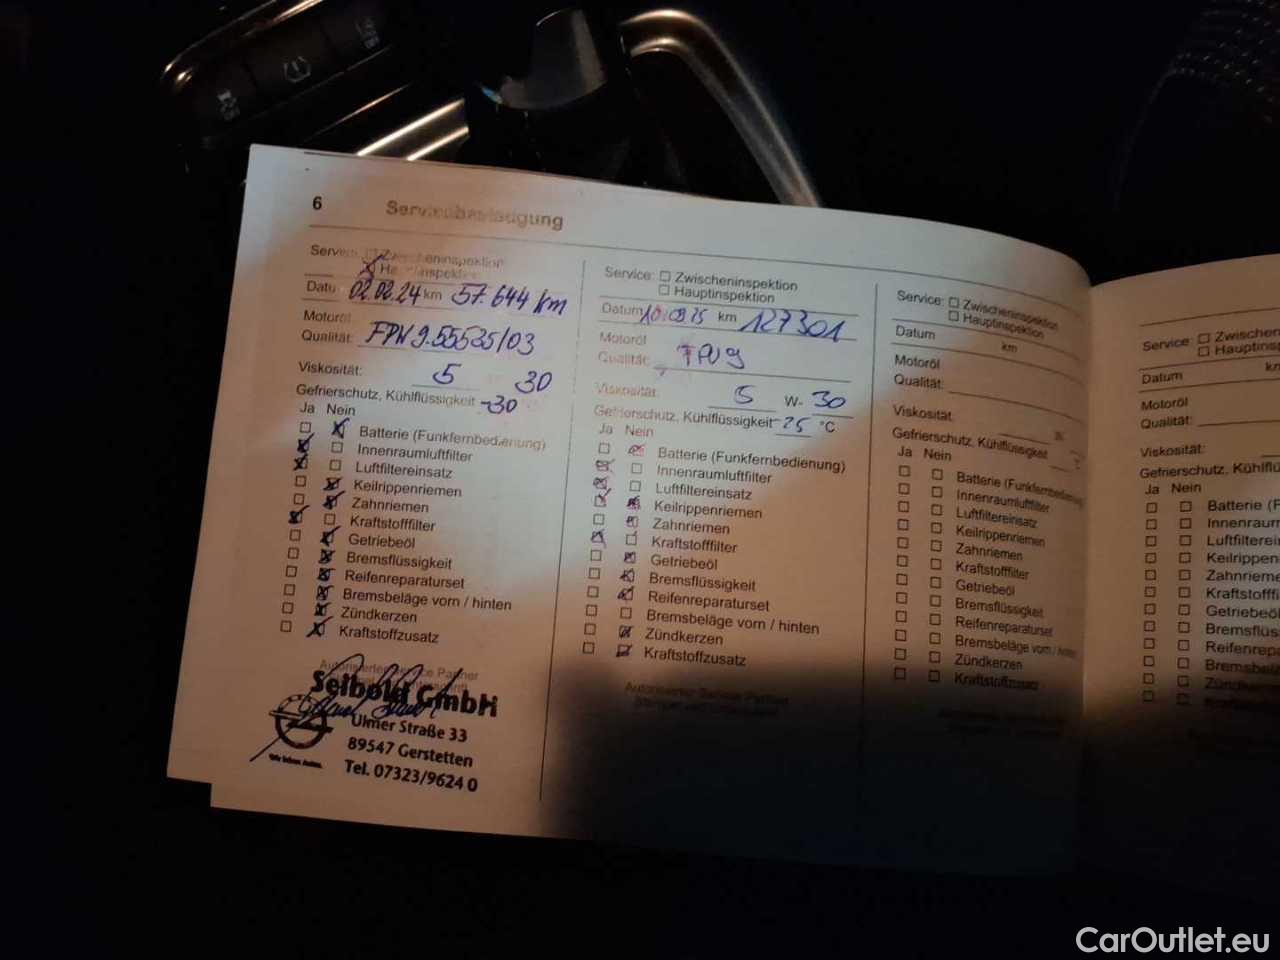 6 Serviceüberzeugung
Service: Zwischeninspektion
Hauptinspektion
Datu 02.02.24 km 57.644 km
Motoröl
Qualität: FPW 9.55535/03
Viskosität: 5 30
Gefrierschutz, Kühlflüssigkeit -30
Ja Nein
Batterie (Funkfernbedienung)
Innenraumluftfilter
Luftfiltereinsatz
Keilrippenriemen
Zahnriemen
Kraftstofffilter
Getriebeöl
Bremsflüssigkeit
Reifenreparaturset
Bremsbeläge vorn / hinten
Zündkerzen
Kraftstoffzusatz
Autorisierter Service Partner
Seibold GmbH
Ulmer Straße 33
89547 Gerstetten
Tel. 07323/9624 0
Service: Zwischeninspektion
Hauptinspektion
Datum 10.09.25 km 127301
Motoröl
Qualität: FPW 9
Viskosität: 5 W- 30
Gefrierschutz, Kühlflüssigkeit -25 °C
Ja Nein
Batterie (Funkfernbedienung)
Innenraumluftfilter
Luftfiltereinsatz
Keilrippenriemen
Zahnriemen
Kraftstofffilter
Getriebeöl
Bremsflüssigkeit
Reifenreparaturset
Bremsbeläge vorn / hinten
Zündkerzen
Kraftstoffzusatz
Autorisierter Service Partner
Service: Zwischeninspektion
Hauptinspektion
Datum km
Motoröl
Qualität:
Viskosität:
Gefrierschutz, Kühlflüssigkeit °C
Ja Nein
Batterie (Funkfernbedienung
Innenraumluftfilter
Luftfiltereinsatz
Keilrippenriemen
Zahnriemen
Kraftstofffilter
Getriebeöl
Bremsflüssigkeit
Reifenreparaturset
Bremsbeläge vorn / hinten
Zündkerzen
Kraftstoffzusatz
Service: Zwischen
Hauptins
Datum km
Motoröl
Qualität:
Viskosität:
Gefrierschutz, Kühlflü
Ja Nein
Batterie (F
Innenraum
Luftfilterei
Keilrippen
Zahnrieme
Kraftstofffi
Getriebeöl
Bremsflüs
Reifenrepa
Bremsbelä
Zündkerze
CarOutlet.eu